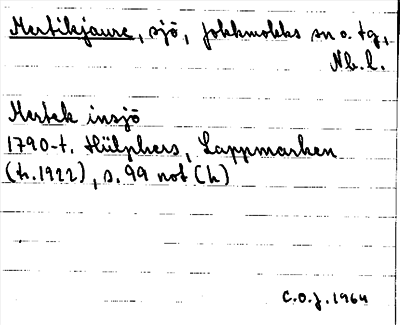 Mertikjaure, sjö, Jokkmokks sn o. tg,
Nb. l.
Mertek insjö
1790-t. Hülphers, Lappmarken
(tr. 1922), s. 99 not (h)
C.O.J. 1964